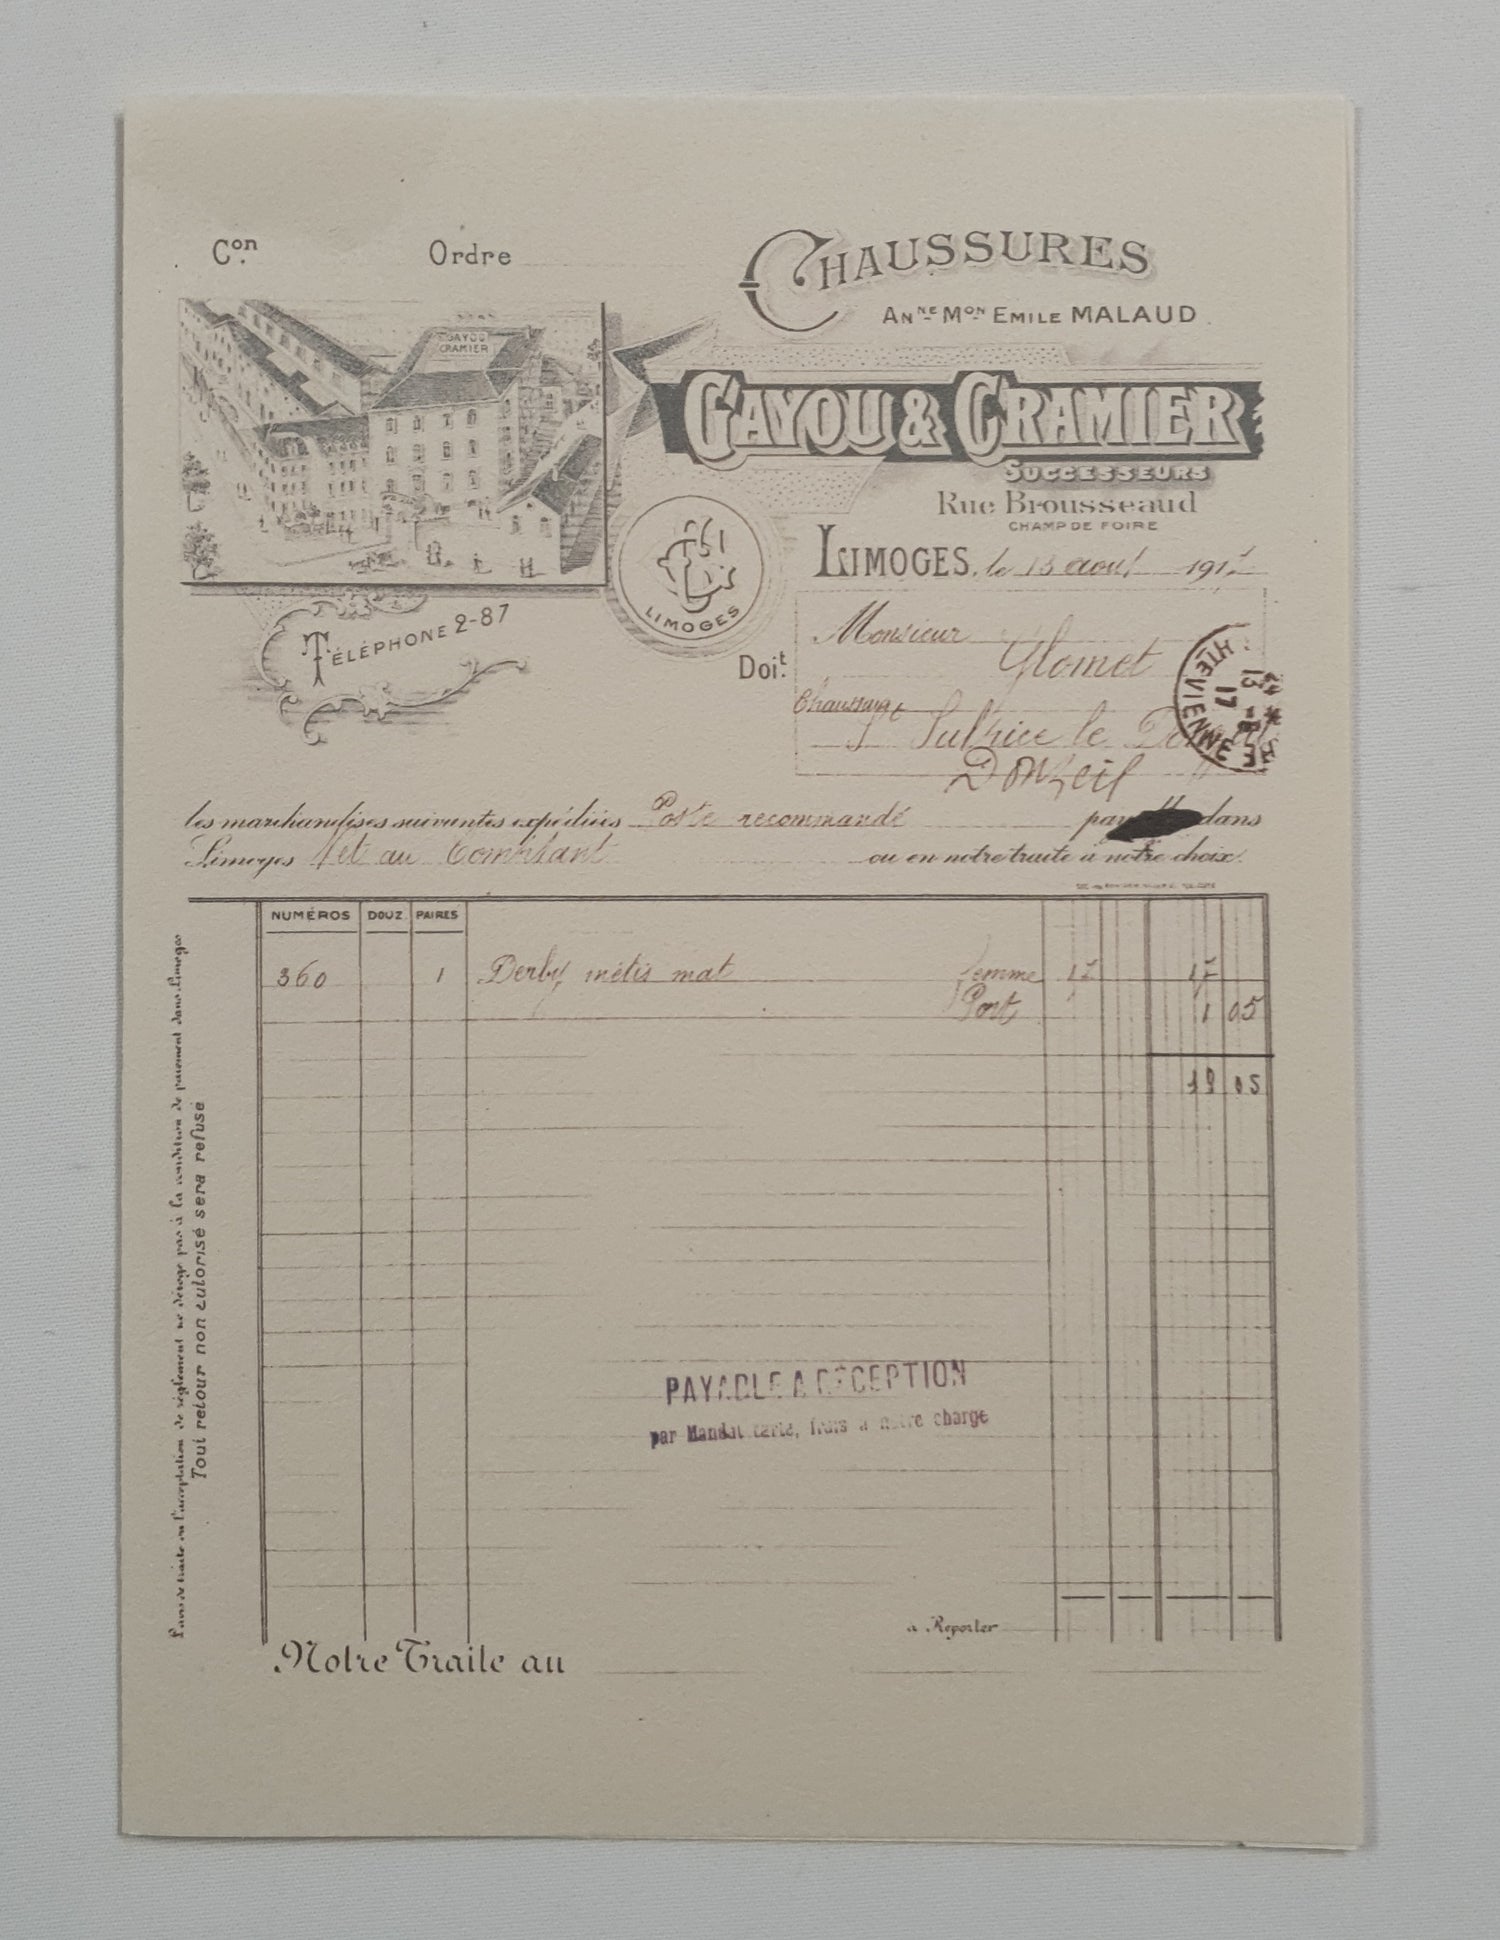 Con. Ordre
CHAUSSURES
ANNE MON EMILE MALAUD
GAYOU
CRAMIER
GAYOU & CRAMIER
SUCCESSEURS
Rue Brousseaud
CHAMP DE FOIRE
LIMOGES, le 13 aout 1917
LIMOGES
TÉLÉPHONE 2-87
Doit
Monsieur
Glomet
St Sulpice le
Donzeil
HTE VIENNE
13
17
les marchandises suivantes expédiées Poste recommandé dans
Limoges Net au Comptant ou en notre traite à notre choix.
NUMÉROS DOUZ. PAIRES
360 1 Derby métis mat femme
Port 1 05
19 05
PAYABLE A RÉCEPTION
par Mandat carte, frais a notre charge
à Reporter
Notre Traite au
L'avis de traite ou l'acceptation de règlement ne déroge pas à la condition de paiement dans Limoges
Tout retour non autorisé sera refusé